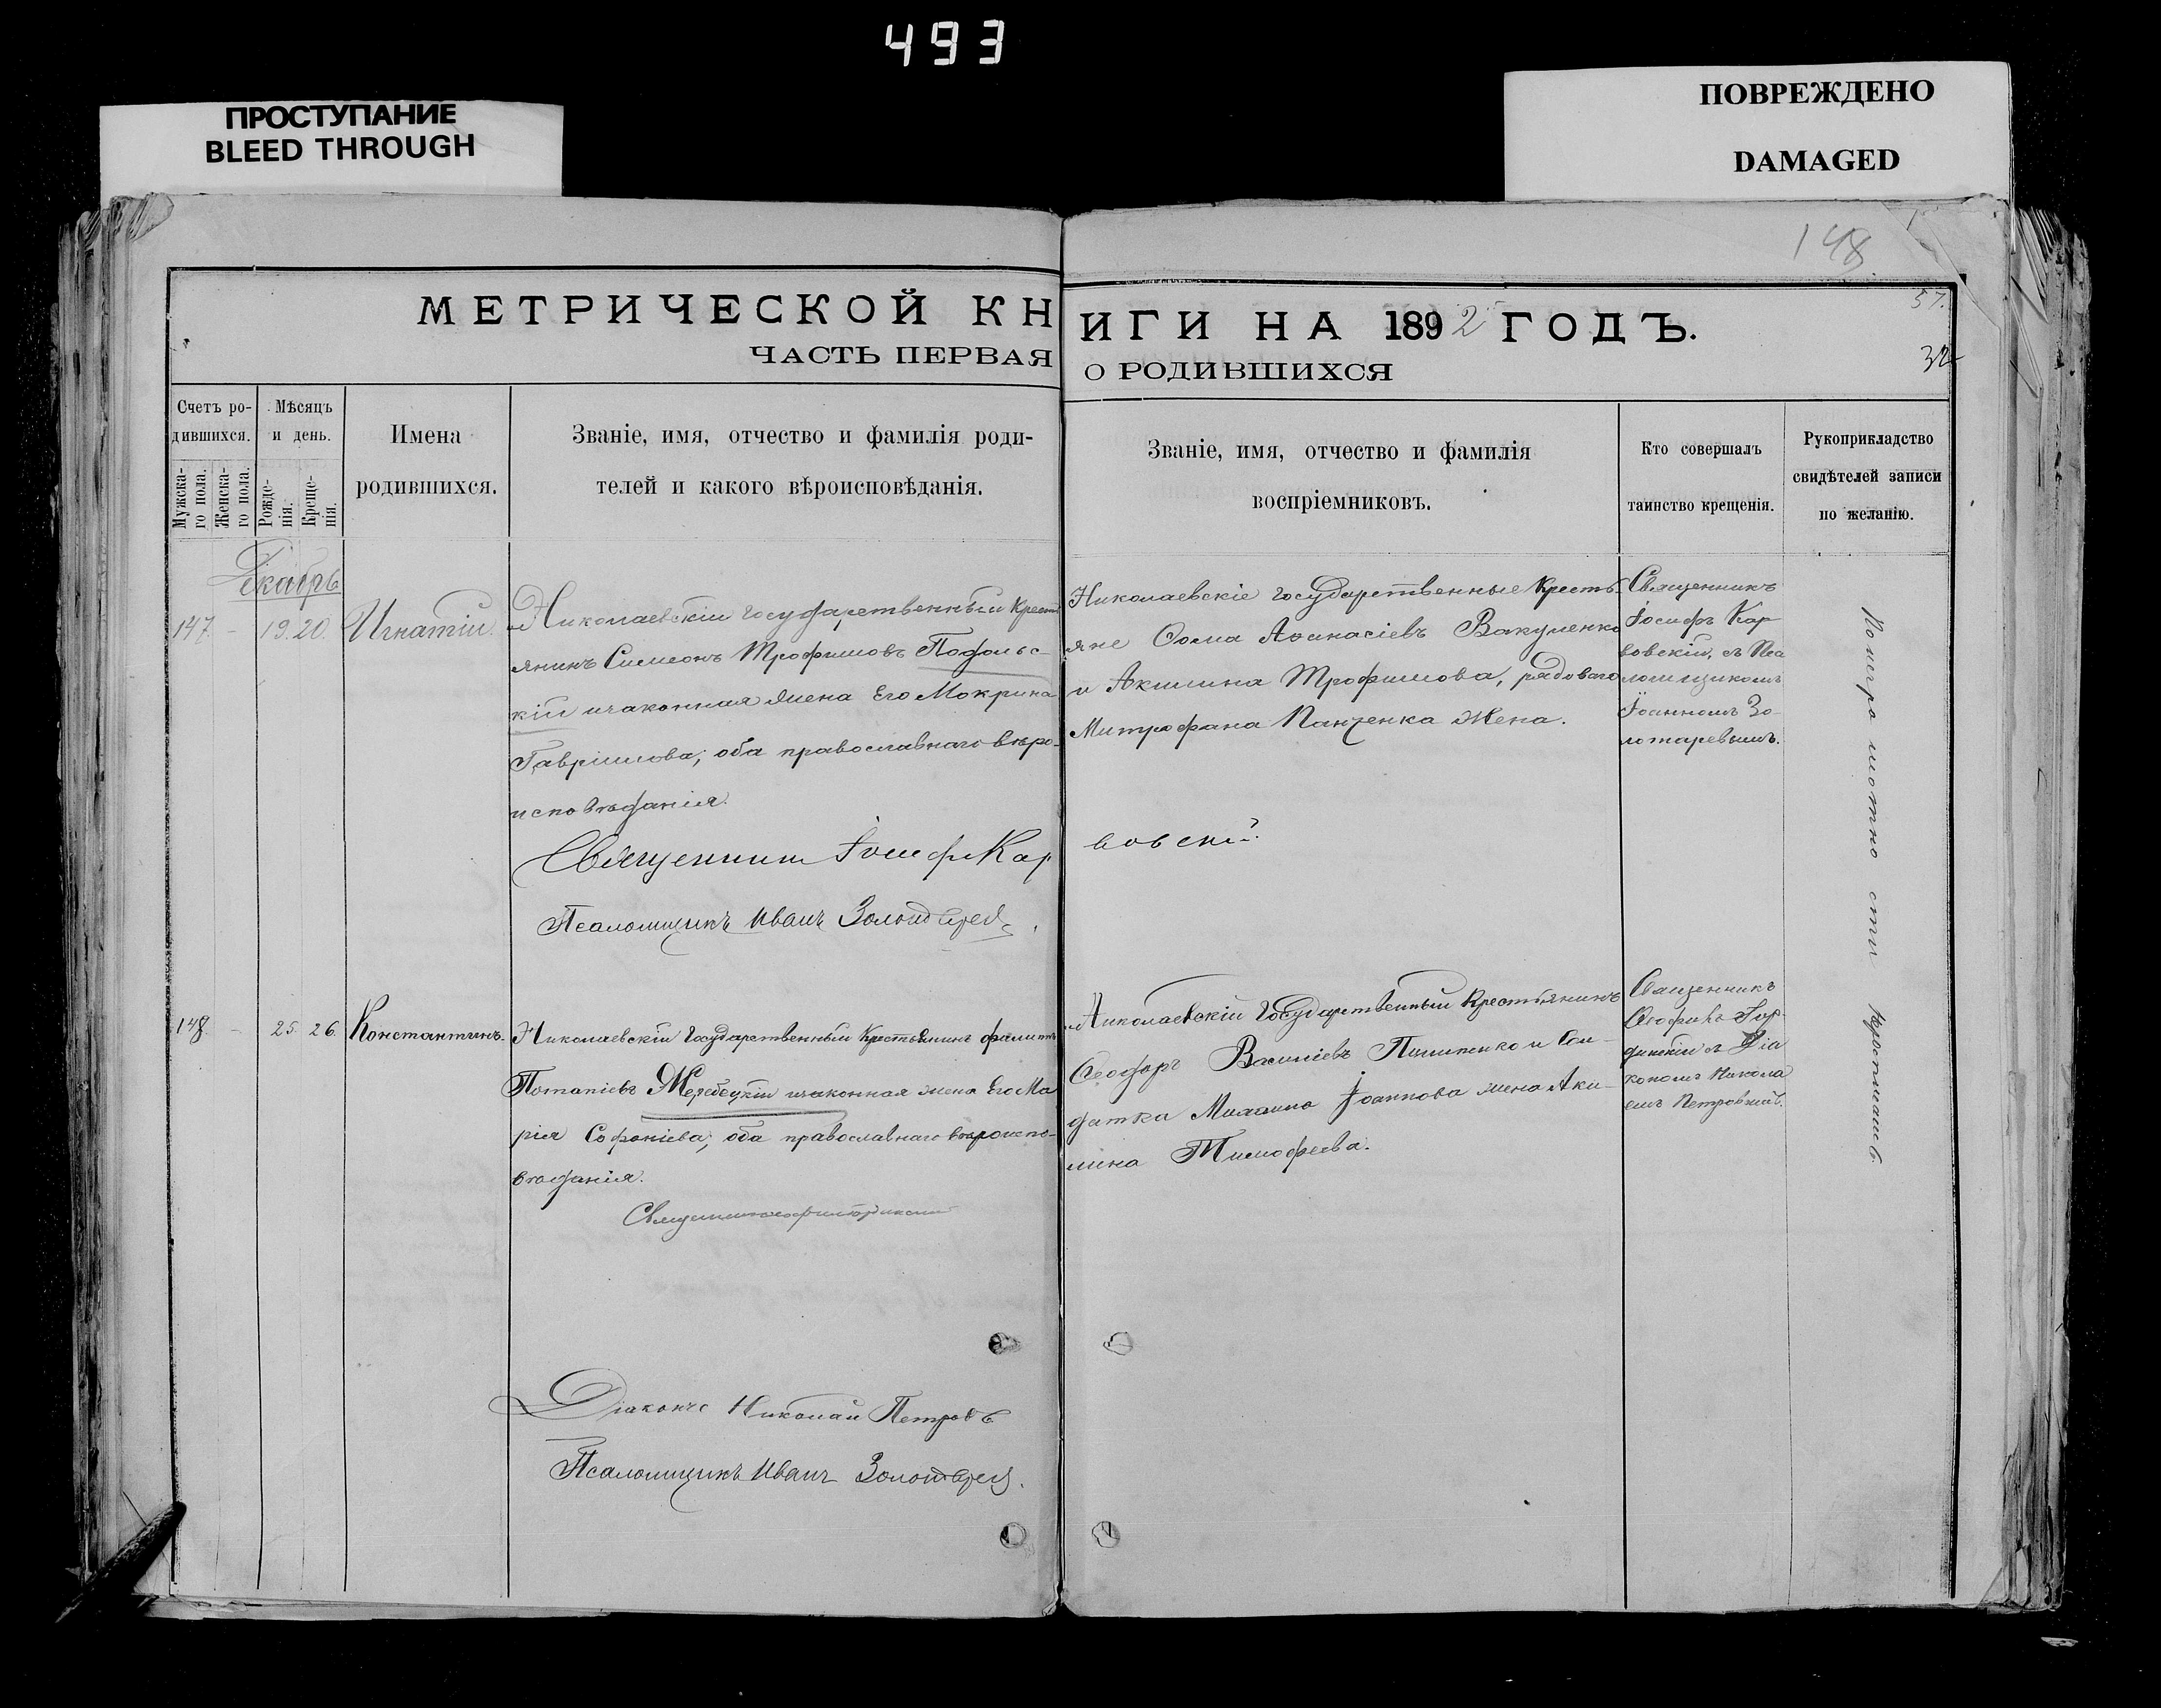 493
ПРОСТУПАНИЕ
BLEED THROUGH
ПОВРЕЖДЕНО
DAMAGED
148
57.
32
МЕТРИЧЕСКОЙ КНИГИ НА 1892 ГОДЪ.
ЧАСТЬ ПЕРВАЯ О РОДИВШИХСЯ
Счетъ ро-
дившихся.
Мужска-
го пола.
Женска-
го пола.
Мѣсяцъ
и день.
Рожде-
нія.
Креще-
нія.
Имена
родившихся.
Званіе, имя, отчество и фамилія роди-
телей и какого вѣроисповѣданія.
Званіе, имя, отчество и фамилія
воспріемниковъ.
Кто совершалъ
таинство крещенія.
Рукоприкладство
свидѣтелей записи
по желанію.
Декабрь
147. - 19. 20. Игнатій.
Николаевскій государственный кресть
янинъ Симеонъ Трофимовъ Подольс-
кій изаконная жена Его Мокрина
Гавріилова, оба православнаго вѣро-
исповѣданія.
Николаевскіе государственные Кресть-
яне Ѳома Аѳанасіевъ Вакуленко
и Акилина Трофимова, рядоваго
Митрофана Панченка жена.
Священникъ
Іосифъ Кар
вовскій, съ Пса
ломщикомъ
Іоанномъ Зо-
лотаревымъ.
Священник Іосиф Карвовскій.
Псаломщикъ Иванъ Золотарев.
148. - 25. 26. Константинъ.
Николаевскій Государственный Крестьянинъ
Потапіевъ Жеребецкій изаконная жена Его Ма
рія Софоніева, оба православнаго вѣроиспо-
вѣданія.
Николаевскій Государственный Крестьянинъ
Ѳеодоръ Василіевъ Пилипенко и Сол-
датка Михаила Іоаннова жена Аки-
лина Тимофеева.
Священникъ
Ѳеофилъ
съ Діа
кономъ Никола
емъ Петровымъ.
Священник
Діаконъ Николай Петровъ
Псаломщикъ Иванъ Золотарев.